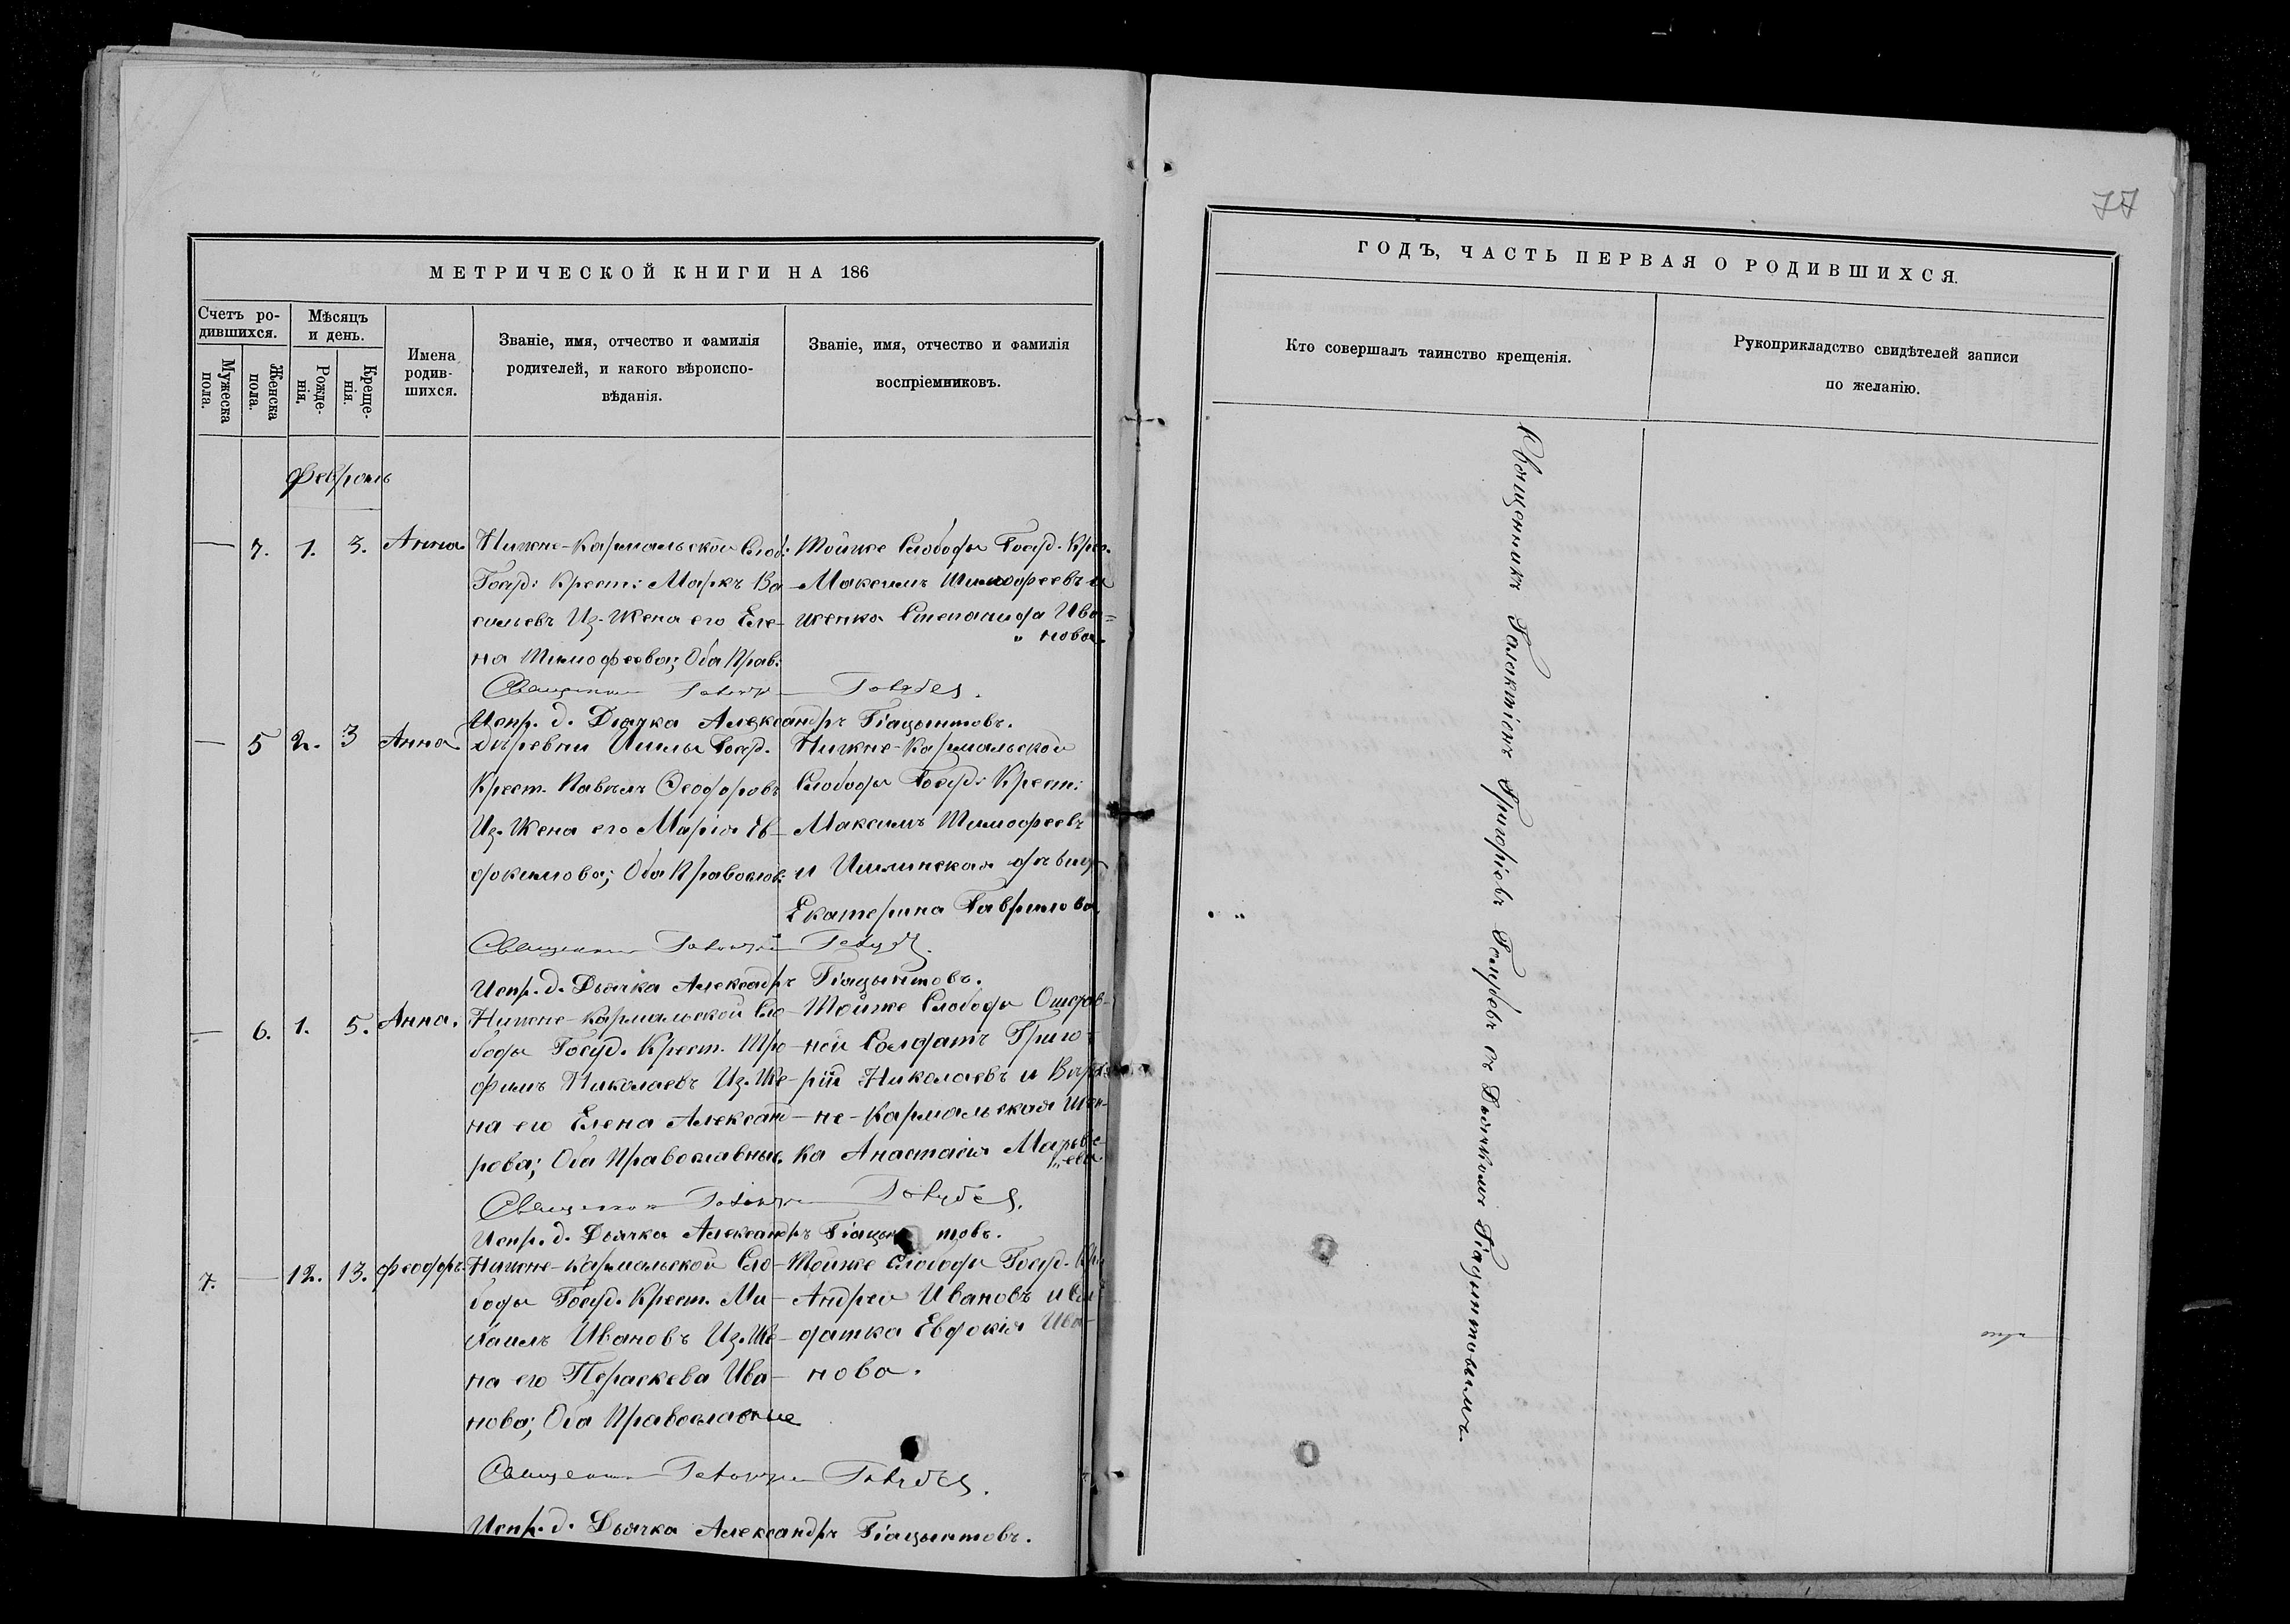 77
МЕТРИЧЕСКОЙ КНИГИ НА 186
ГОДЪ, ЧАСТЬ ПЕРВАЯ О РОДИВШИХСЯ.
Счетъ ро-
дившихся.
Мужеска
пола.
Женска
пола.
Мѣсяцъ
и день.
Рожде-
нія.
Креще-
нія.
Имена
родив-
шихся.
Званіе, имя, отчество и фамилія
родителей, и какого вѣроиспо-
вѣданія.
Званіе, имя, отчество и фамилія
воспріемниковъ.
Кто совершалъ таинство крещенія.
Рукоприкладство свидѣтелей записи
по желанію.
Февраль
— 7. 1. 3. Анна
Нижне-Кармальской Слоб:
Госуд: Крест: Маркъ Ва-
сильевъ Из. Жена его Еле-
на Тимофеева; Оба Прав:
Тойже Слободы Госуд. Крес.
Максимъ Тимофеевъ и
женка Степанида Ива=
нова.
Священникъ Галактіонъ Голубевъ.
Испр. д. Дьячка Александръ Гіацынтовъ.
— 5 2. 3 Анна.
деревни Ишлы Госуд.
Крест. Павелъ Ѳеодоровъ
Из. Жена его Марія Ев-
докимова; Оба Православ:
Нижне-Кармальской
Слободы Госуд: Крест:
Максимъ Тимофеевъ
и Ишлинская девица
Екатерина Гаврилова.
Священникъ Галактіонъ Голубевъ.
Испр. д. Дьячка Александръ Гіацынтовъ.
— 6. 1. 5. Анна.
Нижне-Кармальской Сло-
боды Госуд. Крест. Тро-
фимъ Николаевъ Из. Же-
на его Елена Александ-
рова; Оба Православные.
Тойже Слободы
ной Солдатъ Григо-
рій Николаевъ и
не-Кармальская Жен-
ка Анастасія
Священникъ Галактіонъ Голубевъ.
Испр. д. Дьячка Александръ Гіацынтовъ.
7. — 12. 13. Феодоръ.
Нижне-Кармальской Сло-
боды Госуд. Крест. Ми-
хаилъ Ивановъ Из. Же-
на его Параскева Ива-
нова; Оба Православные
Тойже Слободы Госуд. Кр
Андрей Ивановъ и Сол
датка Евдокія Ива-
нова.
Священникъ Галактіонъ Голубевъ.
Испр. д. Дьячка Александръ Гіацынтовъ.
Священникъ Галактіонъ Григоріевъ Голубевъ съ Дьячкомъ Гіацынтовымъ.